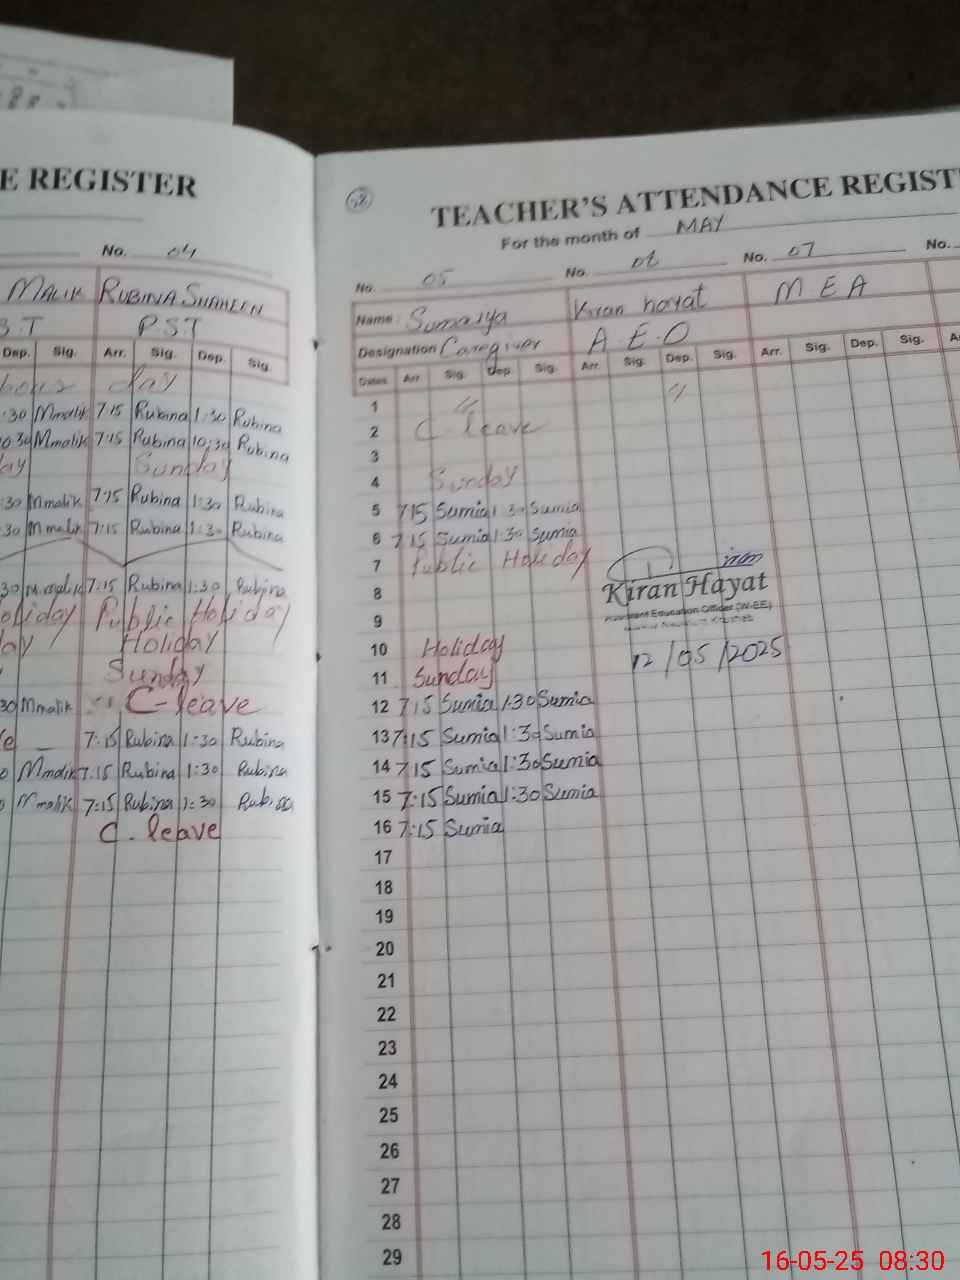 E REGISTER
No. 04
MALIK RUBINA SHAHEEN
S.T P.S.T
Dep. Sig. Arr. Sig. Dep. Sig.
bour day
:30 Mmalik 7:15 Rubina 1:30 Rubina
0:30 Mmalik 7:15 Rubina 10:30 Rubina
ay Sunday
:30 Mmalik 7:15 Rubina 1:30 Rubina
:30 Mmalik 7:15 Rubina 1:30 Rubina
30 M.malik 7:15 Rubina 1:30 Rubina
oliday Public Holiday
day Holiday
Sunday
30 Mmalik C-leave
7:15 Rubina 1:30 Rubina
0 Mmalik 7:15 Rubina 1:30 Rubina
0 Mmalik 7:15 Rubina 1:30 Rubina
C-leave
52
TEACHER'S ATTENDANCE REGIST
For the month of MAY
No. 05 No. 06 No. 07 No.
Name: Sumaiya Kiran hayat M E A
Designation Caregiver A.E.O
Dates Arr. Sig. Dep. Sig. Arr. Sig. Dep. Sig. Arr. Sig. Dep. Sig. A
1 " "
2 C-leave
3
4 Sunday
5 7 15 Sumia 1:30 Sumia
6 7 15 Sumia 1:30 Sumia
7 Public Holiday
8 Kiran Hayat
Assistant Education Officer (W-EE)
9
10 Holiday 12/05/2025
11 Sunday
12 7:15 Sumia 1:30 Sumia
13 7:15 Sumia 1:30 Sumia
14 7:15 Sumia 1:30 Sumia
15 7:15 Sumia 1:30 Sumia
16 7:15 Sumia
17
18
19
20
21
22
23
24
25
26
27
28
29
16-05-25 08:30